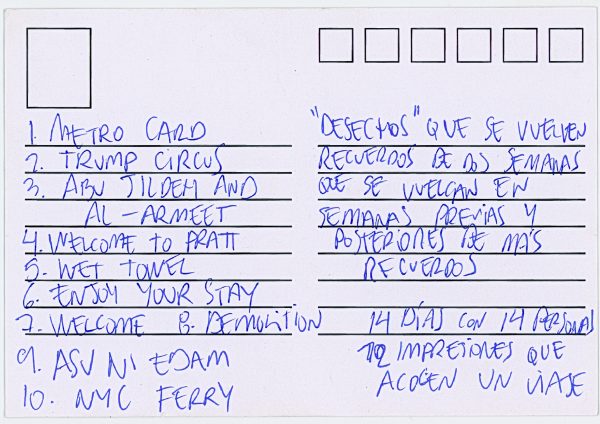 1. METRO CARD
2. TRUMP CIRCUS
3. ABU JILDEH AND
AL-ARMEET
4. WELCOME TO PRATT
5. WET TOWEL
6. ENJOY YOUR STAY
7. WELCOME 8. DEMOLITION
9. ASU NI EDAM
10. NYC FERRY
"DESECHOS" QUE SE VUELVEN
RECUERDOS DE DOS SEMANAS
QUE SE VUELCAN EN
SEMANAS PREVIAS Y
POSTERIORES DE MÁS
RECUERDOS
14 DÍAS CON 14 PERSONAS
12 IMPRESIONES QUE
ACOGEN UN VIAJE